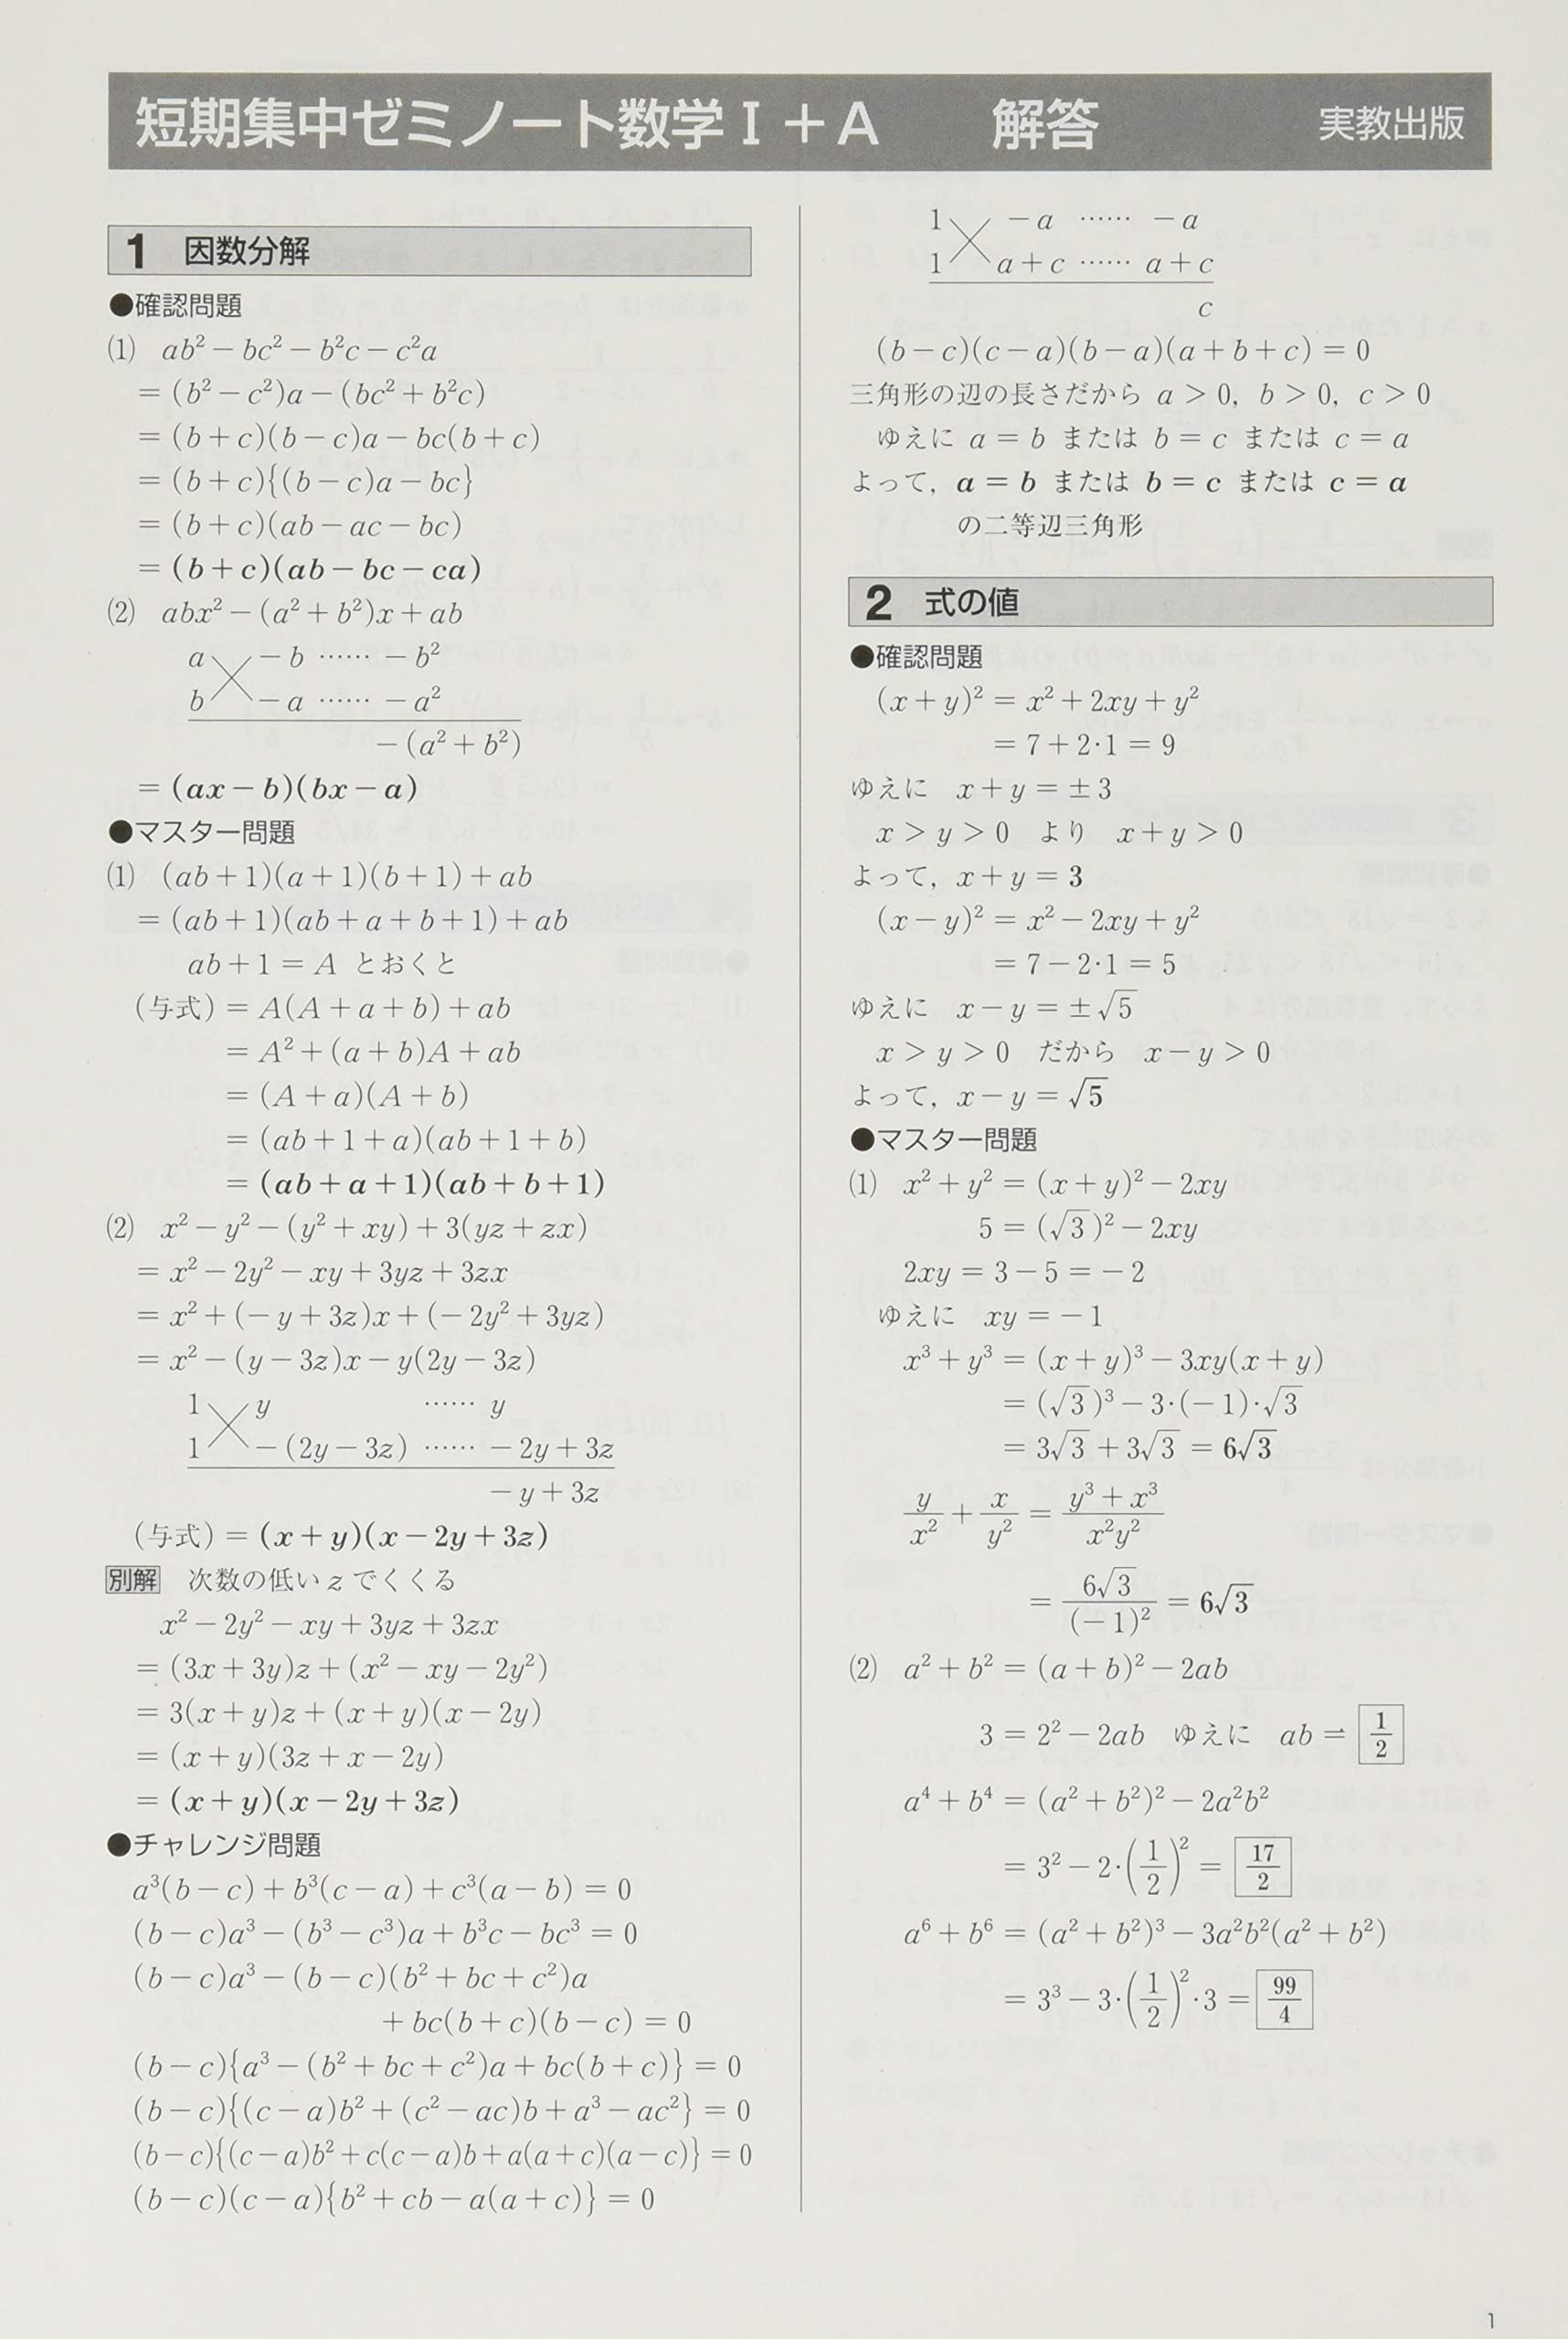 短期集中ゼミノート数学Ⅰ+A 解答 実教出版
1 因数分解
●確認問題
⑴ ab² − bc² − b²c − c²a
= (b² − c²)a − (bc² + b²c)
= (b + c)(b − c)a − bc(b + c)
= (b + c){(b − c)a − bc}
= (b + c)(ab − ac − bc)
= (b + c)(ab − bc − ca)
⑵ abx² − (a² + b²)x + ab
a − b …… − b²
b − a …… − a²
− (a² + b²)
= (ax − b)(bx − a)
●マスター問題
⑴ (ab + 1)(a + 1)(b + 1) + ab
= (ab + 1)(ab + a + b + 1) + ab
ab + 1 = A とおくと
(与式) = A(A + a + b) + ab
= A² + (a + b)A + ab
= (A + a)(A + b)
= (ab + 1 + a)(ab + 1 + b)
= (ab + a + 1)(ab + b + 1)
⑵ x² − y² − (y² + xy) + 3(yz + zx)
= x² − 2y² − xy + 3yz + 3zx
= x² + (− y + 3z)x + (− 2y² + 3yz)
= x² − (y − 3z)x − y(2y − 3z)
1 y …… y
1 − (2y − 3z) …… − 2y + 3z
− y + 3z
(与式) = (x + y)(x − 2y + 3z)
別解 次数の低い z でくくる
x² − 2y² − xy + 3yz + 3zx
= (3x + 3y)z + (x² − xy − 2y²)
= 3(x + y)z + (x + y)(x − 2y)
= (x + y)(3z + x − 2y)
= (x + y)(x − 2y + 3z)
●チャレンジ問題
a³(b − c) + b³(c − a) + c³(a − b) = 0
(b − c)a³ − (b³ − c³)a + b³c − bc³ = 0
(b − c)a³ − (b − c)(b² + bc + c²)a
+ bc(b + c)(b − c) = 0
(b − c){a³ − (b² + bc + c²)a + bc(b + c)} = 0
(b − c){(c − a)b² + (c² − ac)b + a³ − ac²} = 0
(b − c){(c − a)b² + c(c − a)b + a(a + c)(a − c)} = 0
(b − c)(c − a){b² + cb − a(a + c)} = 0
1 − a …… − a
1 a + c …… a + c
c
(b − c)(c − a)(b − a)(a + b + c) = 0
三角形の辺の長さだから a > 0, b > 0, c > 0
ゆえに a = b または b = c または c = a
よって, a = b または b = c または c = a
の二等辺三角形
2 式の値
●確認問題
(x + y)² = x² + 2xy + y²
= 7 + 2·1 = 9
ゆえに x + y = ± 3
x > y > 0 より x + y > 0
よって, x + y = 3
(x − y)² = x² − 2xy + y²
= 7 − 2·1 = 5
ゆえに x − y = ± √5
x > y > 0 だから x − y > 0
よって, x − y = √5
●マスター問題
⑴ x² + y² = (x + y)² − 2xy
5 = (√3)² − 2xy
2xy = 3 − 5 = − 2
ゆえに xy = − 1
x³ + y³ = (x + y)³ − 3xy(x + y)
= (√3)³ − 3·(− 1)·√3
= 3√3 + 3√3 = 6√3
y/x² + x/y² = (y³ + x³)/(x²y²)
= 6√3/(− 1)² = 6√3
⑵ a² + b² = (a + b)² − 2ab
3 = 2² − 2ab ゆえに ab = 1/2
a⁴ + b⁴ = (a² + b²)² − 2a²b²
= 3² − 2·(1/2)² = 17/2
a⁶ + b⁶ = (a² + b²)³ − 3a²b²(a² + b²)
= 3³ − 3·(1/2)²·3 = 99/4
1